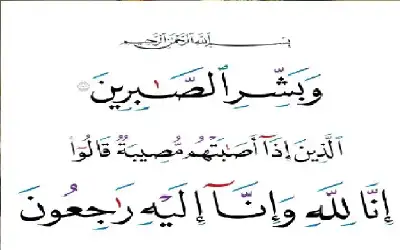 بسم الله الرحمن الرحيم
وَبَشِّرِ ٱلصَّـٰبِرِينَ
ٱلَّذِينَ إِذَآ أَصَـٰبَتْهُم مُّصِيبَةٌ قَالُوٓا۟
إِنَّا لِلَّهِ وَإِنَّآ إِلَيْهِ رَٰجِعُونَ